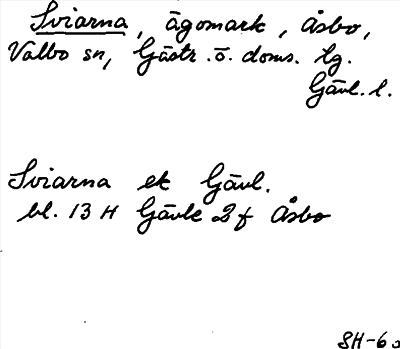 Sviarna, ägomark, Åsbo,
Valbo sn, Gästr. ö. doms. lg.
Gävl. l.
Sviarna ek Gävl.
bl. 13 H Gävle 2 f Åsbo
SH-6